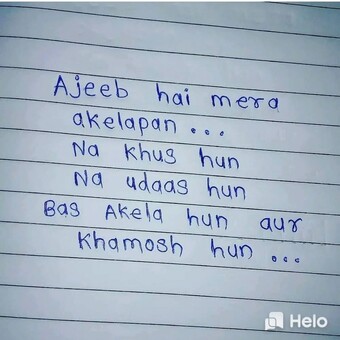 Ajeeb hai mera
akelapan ...
Na khus hun
Na udaas hun
Bas Akela hun aur
Khamosh hun ...
Helo